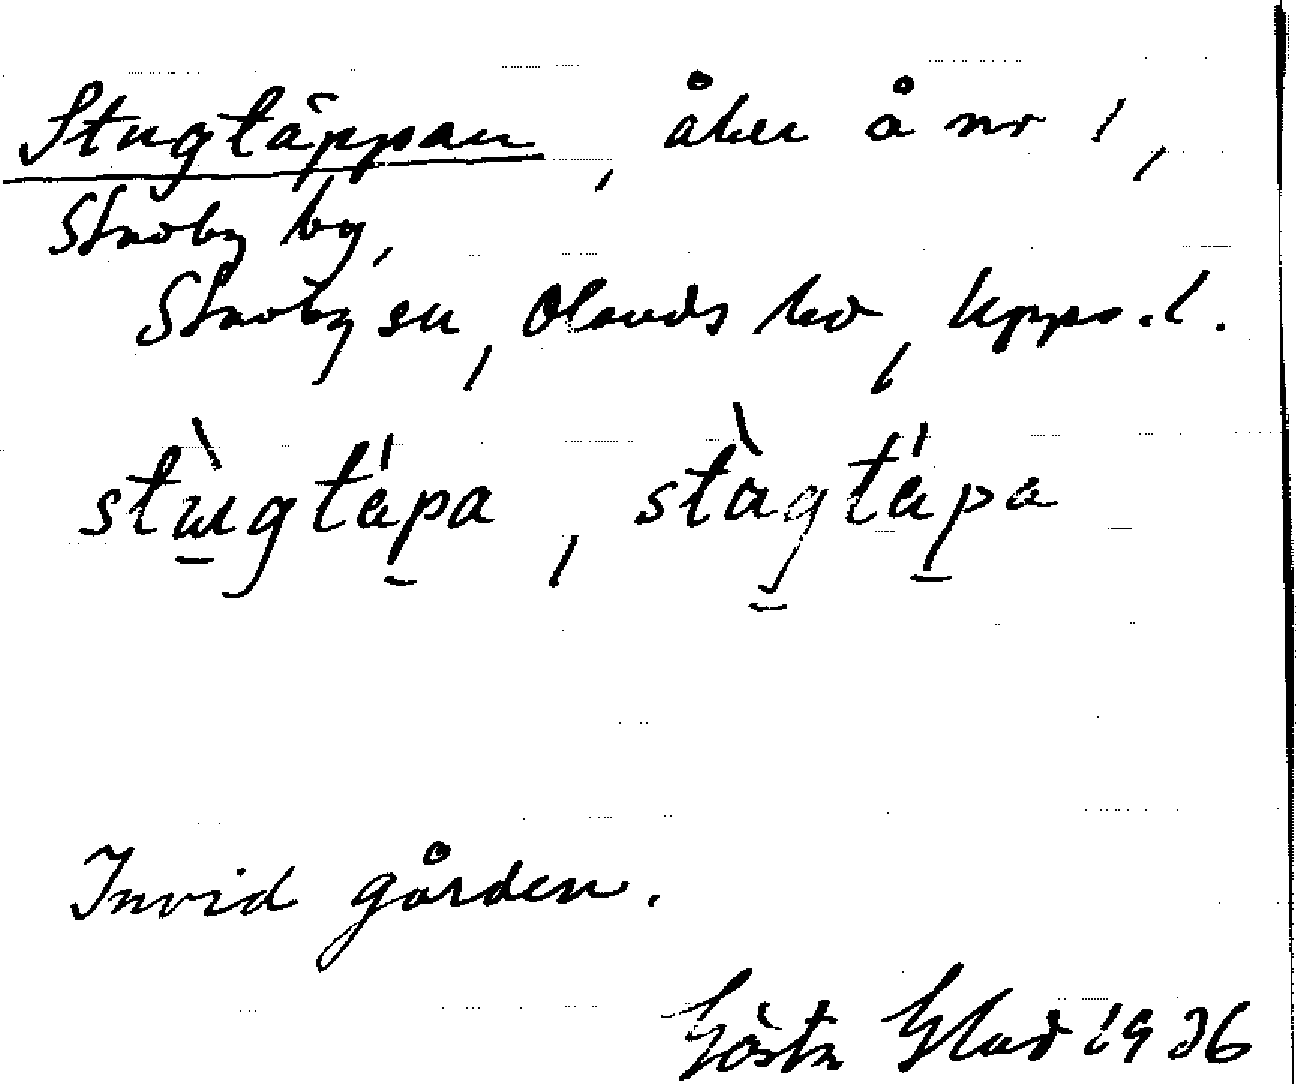 Stugtäppan, åker å nr 1,
Skäby by,
Skäby sn, Olands hd, Upps. l.
stùgtä́pa, stàgtä́pa
Invid gården.
Gösta 1936